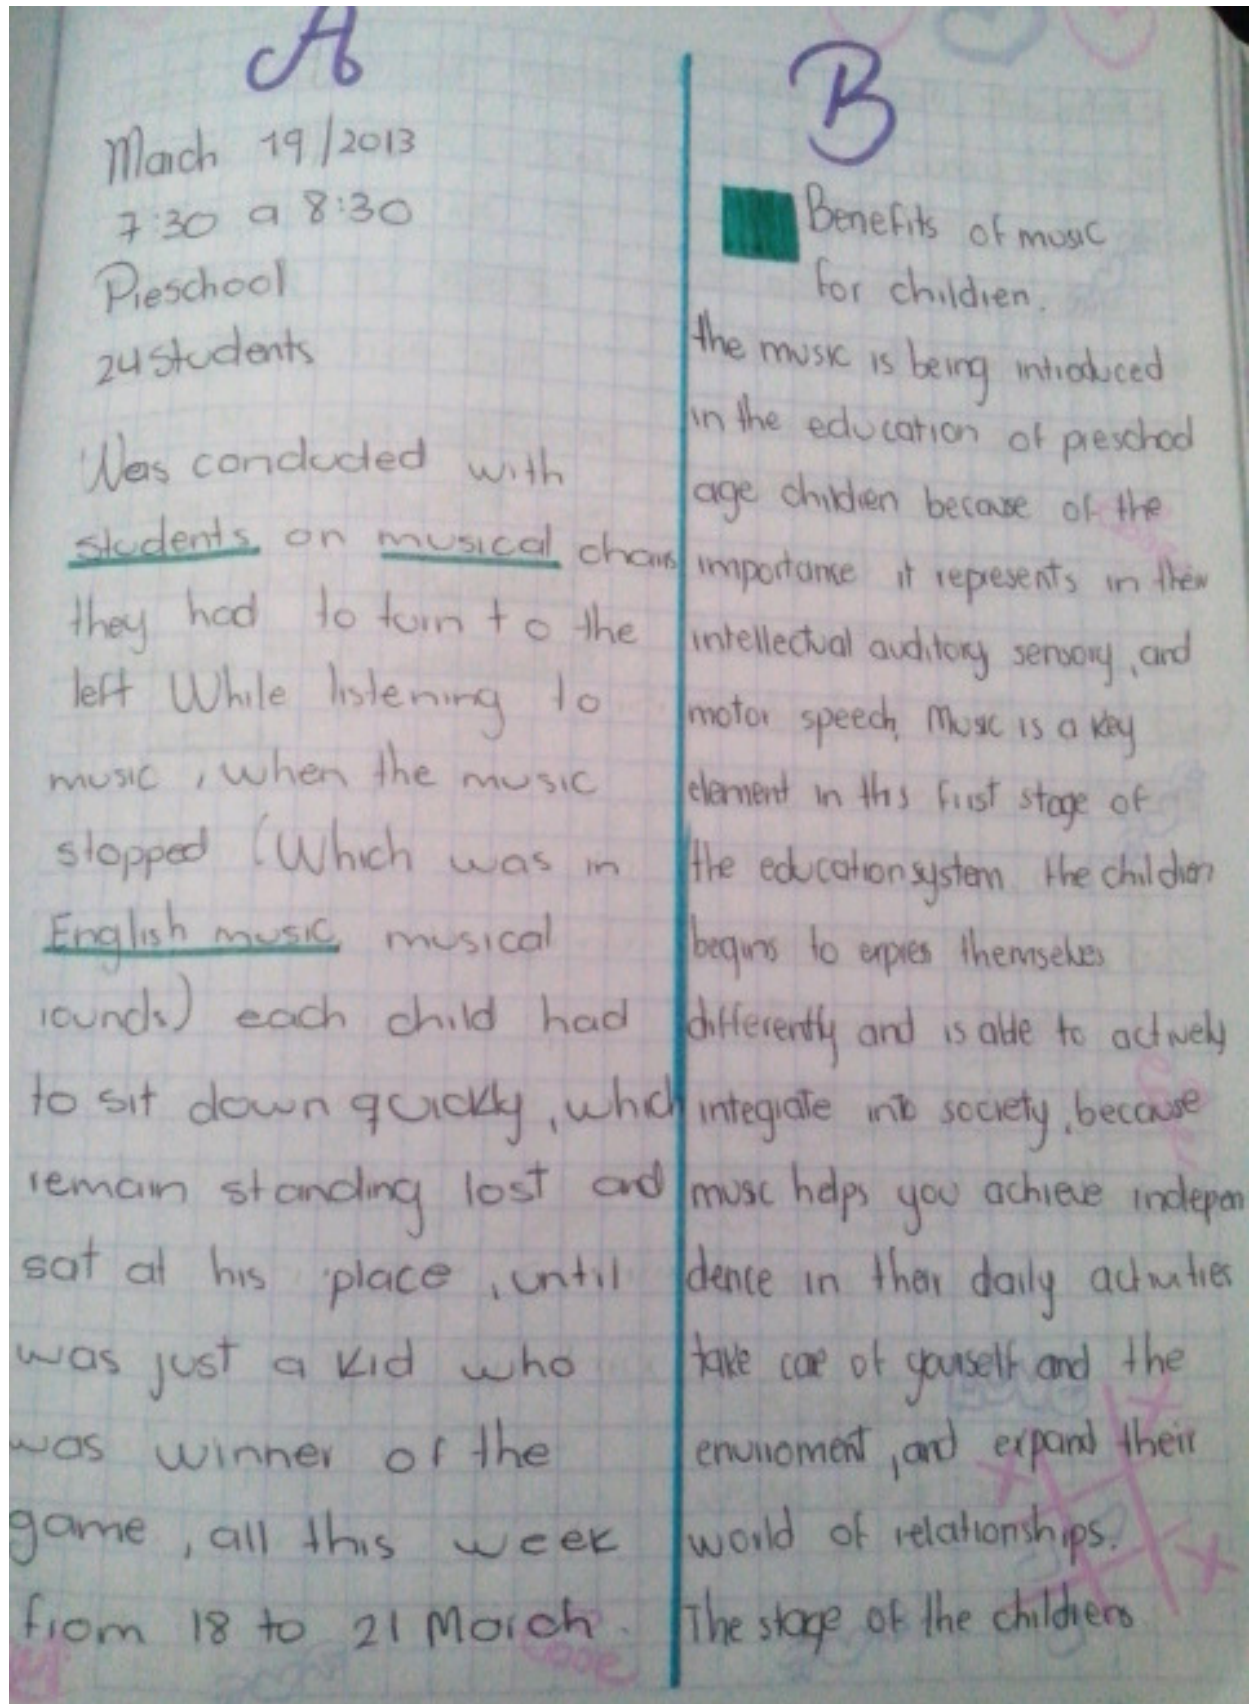 A
March 19/2013
7:30 a 8:30
Preschool
24 students
Was conducted with
students on musical chairs
they had to turn to the
left While listening to
music, when the music
stopped (Which was in
English music musical
rounds) each child had
to sit down quickly, which
remain standing lost and
sat at his place, until
was just a kid who
was winner of the
game, all this week
from 18 to 21 March.
B
Benefits of music
for children.
the music is being introduced
in the education of preschool
age children because of the
importance it represents in their
intellectual auditory sensory, and
motor speech, Music is a key
element in this first stage of
the education system the children
begins to expres themselves
differently and is able to actively
integrate into society, because
music helps you achieve indepen
dence in their daily activities
take care of yourself and the
enviroment, and expand their
world of relationships.
The stage of the childrens